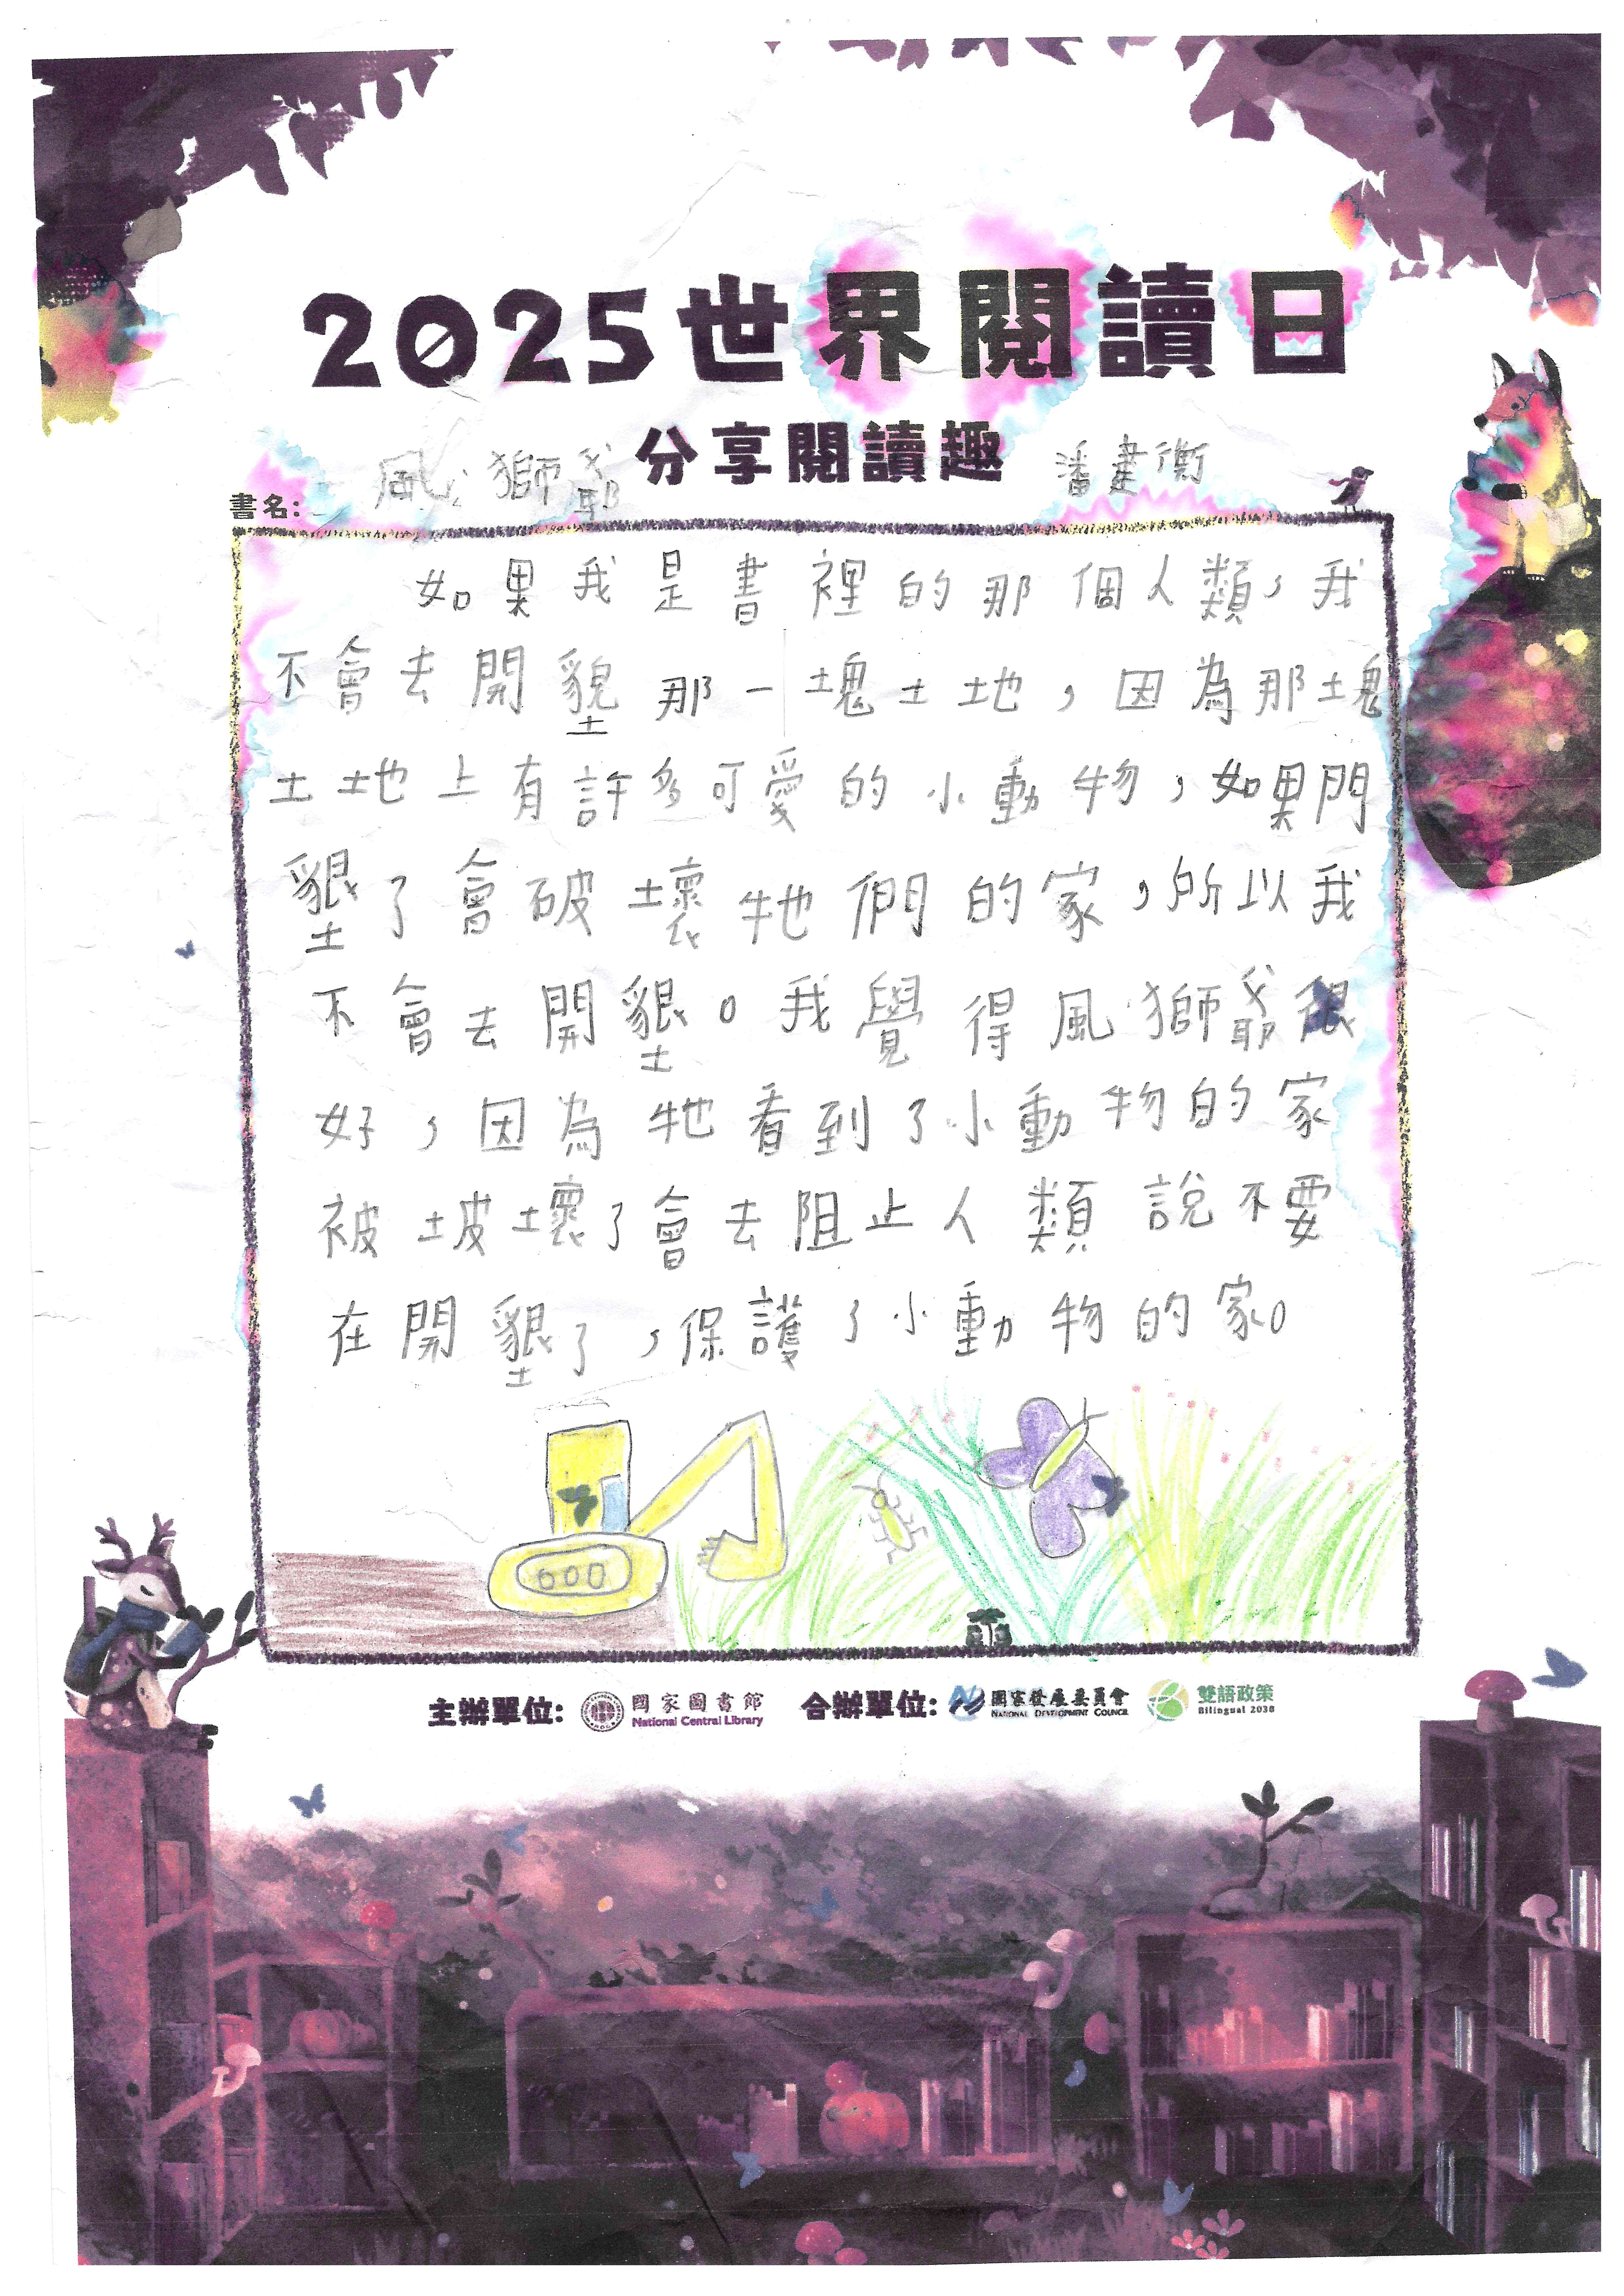 2025世界閱讀日
分享閱讀趣
書名:
風獅爺
潘建衡
如果我是書裡的那個人類,我
不會去開墾那一塊土地,因為那塊
土地上有許多可愛的小動物,如果門
墾了會破壞牠們的家,所以我
不會去開墾。我覺得風獅爺很
好,因為牠看到了小動物的家
被坡壞了會去阻止人類說不要
在開墾了,保護了小動物的家。
主辦單位: 國家圖書館 合辦單位: 國家發展委員會 雙語政策
National Central Library NATIONAL DEVELOPMENT COUNCIL Bilingual 2030